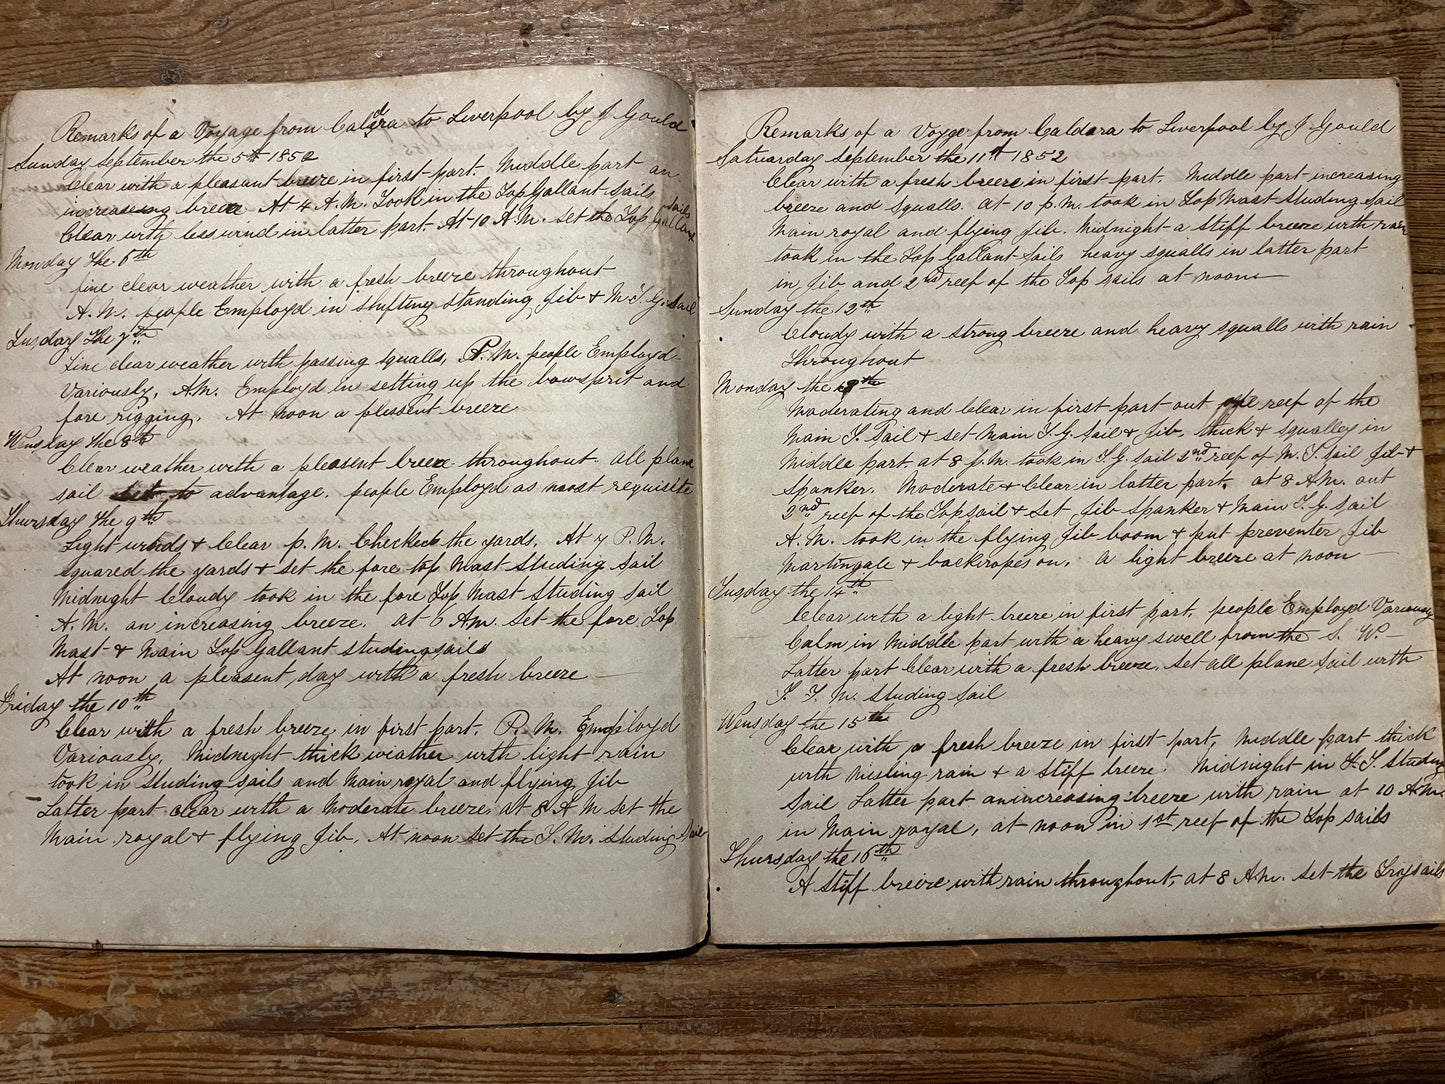 Remarks of a Voyage from Caldra to Liverpool by J Gould
Sunday September the 5th 1852
Clear with a pleasant breeze in first part. Middle part an
increasing breeze At 4 A.M. Took in the Top Gallant Sails
Clear with less wind in latter part At 10 A.M. set the Top Gallant Sails
Monday the 6th
fine clear weather with a fresh breeze throughout
A.M. people Employd in shifting standing Jib & M.T.G. Sail
Tusday the 7th
Fine clear weather with passing squalls, P.M. people Employd
Variously, A.M. Employd in setting up the bowsprit and
fore rigging. At noon a plesent breeze
Wensday the 8th
Clear weather with a pleasent breeze throughout all plane
sail to advantage. people Employd as most requisite
Thursday the 9th
Light winds & Clear P.M. Checked the yards. At 7 P.M.
squared the yards & set the fore top Mast Studing Sail
Midnight Cloudy took in the fore Top Mast Studing Sail
A.M. an increasing breeze. at 6 Am. Set the fore Top
Mast & Main Top Gallant studingsails
At noon a pleasent day with a fresh breeze
Friday the 10th
Clear with a fresh breeze in first part. P.M. Employd
Variously. Midnight thick weather with light rain
took in Studing sails and Main royal and flying Jib
Latter part clear with a Moderate breeze. at 8 A M set the
Main royal & flying Jib. At noon set the T.M. Studing Sail
Remarks of a Voyge from Caldara to Liverpool by J Gould
Saturday September the 11th 1852
Clear with a fresh breeze in first part. Middle part increasing
breeze and Squalls at 10 p.m. took in Top Mast Studing Sail
Main royal and flying Jib. Midnight a Stiff breeze with rain
took in the Top Gallant Sails heavy squalls in latter part
in Jib and 2nd reef of the Top sails at noon
Sunday the 12th
Cloudy with a strong breeze and heavy squalls with rain
throughout
Monday the
Moderating and Clear in first part out one reef of the
Main T. Sail & set Main T.G. Sail & Jib. thick & squalley in
Middle part. at 8 P.M. took in T.G. sail 2nd reef of M.T. sail Jib &
Spanker. Moderate & Clear in latter part at 8 A.M. out
2nd reef of the Topsail & set Jib Spanker & Main T.G. Sail
A.M. took in the flying Jib boom & put preventer Jib
Martingale & backropes on. A light breeze at noon
Tusday the 14th
Clear with a light breeze in first part. people Employd Variously
Calm in Middle part with a heavy swell from the S. W.
Latter part Clear with a fresh breeze. set all plane Sail with
F. T. M. Studing Sail
Wensday the 15th
Clear with a fresh breeze in first part, Middle part thick
with Misling rain & a stiff breeze Midnight in T.T. Studing
Sail Latter part an increasing breeze with rain at 10 A.M.
in Main royal, at noon in 1st reef of the Top sails
Thursday the 16th
A stiff breeze with rain throughout, at 8 A.M. set the Trysails